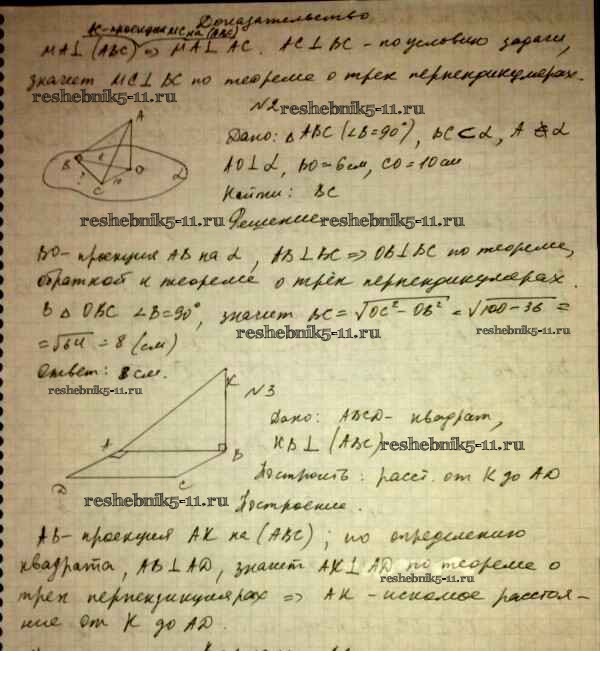 Доказательство
проекция MC на (ABC)
MA⊥(ABC) => MA⊥AC. AC⊥BC - по условию задачи,
значит MC⊥BC по теореме о трех перпендикулярах.
reshebnik5-11.ru reshebnik5-11.ru
N2
A
Дано: △ABC (∠B=90°), BC⊂α, A∉α
B 6 O
? 10 α
C
AO⊥α, BO=6см, CO=10см
Найти: BC
reshebnik5-11.ru reshebnik5-11.ru
Решение
BO-проекция AB на α, AB⊥BC => OB⊥BC по теореме,
обратной к теореме о трёх перпендикулярах.
В △OBC ∠B=90°, значит BC=√OC²-OB² = √100-36 =
reshebnik5-11.ru reshebnik5-11.ru
=√64 = 8 (см)
Ответ: 8 см.
reshebnik5-11.ru
K
N3
Дано: ABCD- квадрат,
A B
KB⊥(ABC)
reshebnik5-11.ru
Построить: расст. от K до AD
D C
reshebnik5-11.ru
Построение.
AB-проекция AK на (ABC); по определению
квадрата, AB⊥AD, значит AK⊥AD по теореме о
reshebnik5-11.ru
трех перпендикулярах => AK -искомое расстоя-
ние от K до AD.